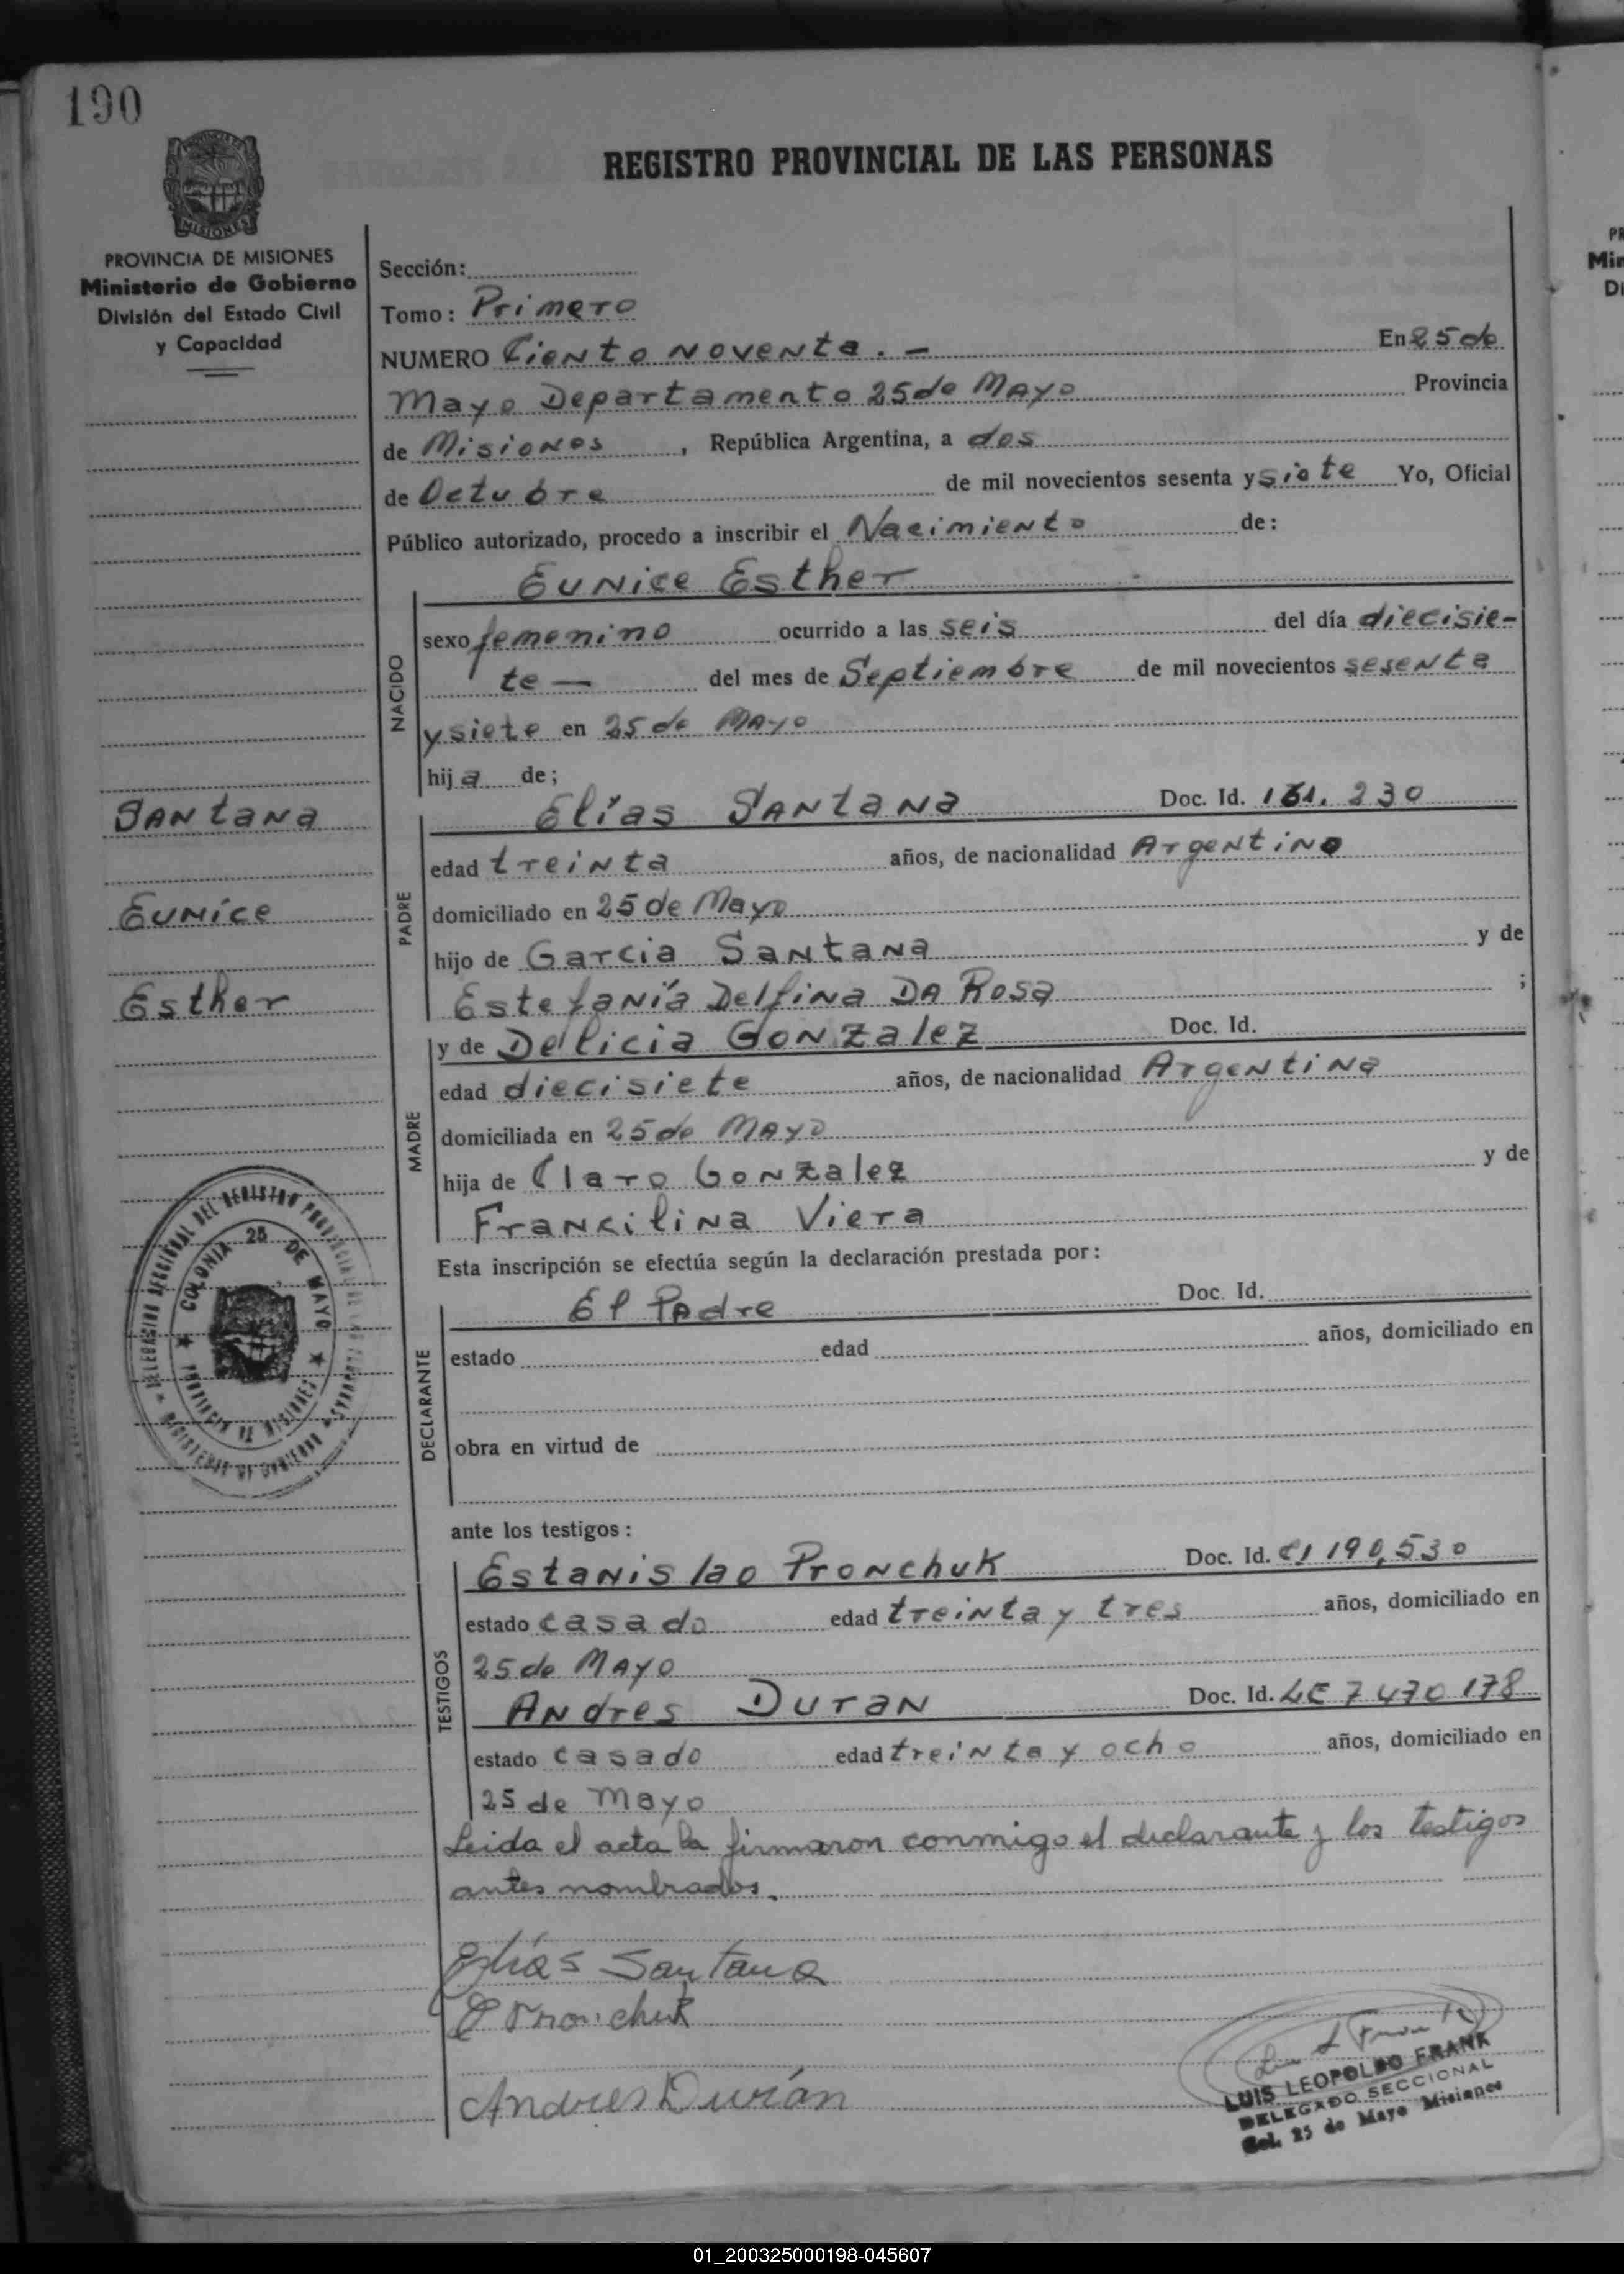 190
REGISTRO PROVINCIAL DE LAS PERSONAS
PROVINCIA DE MISIONES
Ministerio de Gobierno
División del Estado Civil
y Capacidad
Sección:
Tomo: Primero
NUMERO Ciento noventa. - En 25 de
Mayo Departamento 25 de Mayo Provincia
de Misiones, República Argentina, a dos
de Octubre de mil novecientos sesenta y siete Yo, Oficial
Público autorizado, procedo a inscribir el Nacimiento de:
NACIDO
Eunice Esther
sexo femenino ocurrido a las seis del día diecisie-
te — del mes de Septiembre de mil novecientos sesenta
y siete en 25 de Mayo
hija de;
Santana
Eunice
Esther
PADRE
Elías Santana Doc. Id. 161.230
edad treinta años, de nacionalidad Argentino
domiciliado en 25 de Mayo
hijo de Garcia Santana y de
Estefanía Delfina Da Rosa ;
MADRE
y de Delicia Gonzalez Doc. Id.
edad diecisiete años, de nacionalidad Argentina
domiciliada en 25 de Mayo
hija de Claro Gonzalez y de
Francilina Viera
Esta inscripción se efectúa según la declaración prestada por:
DECLARANTE
El Padre Doc. Id.
estado edad años, domiciliado en
obra en virtud de
COLONIA 25 DE MAYO
PROVINCIA DE MISIONES
ante los testigos:
TESTIGOS
Estanislao Pronchuk Doc. Id. CI 190,530
estado casado edad treinta y tres años, domiciliado en
25 de Mayo
Andres Duran Doc. Id. LE 7 470 178
estado casado edad treinta y ocho años, domiciliado en
25 de Mayo
Leida el acta la firmaron conmigo el declarante y los testigos
antes nombrados.
Elías Santana
E Pronchuk
Andres Durán
LUIS LEOPOLDO FRANK
DELEGADO SECCIONAL
Col. 25 de Mayo Misiones
01_200325000198-045607